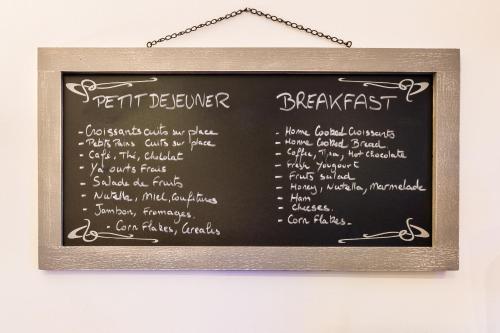 PETIT DEJEUNER
- Croissants cuits sur place
- Petits Pains cuits sur place
- Café, Thé, Chocolat
- Ya ourts Frais
- Salade de Fruits
- Nutella, Miel, Confitures
- Jambon, Fromages.
- Corn Flakes, Cereales
BREAKFAST
- Home Cooked Croissants
- Home Cooked Bread
- Coffee, Tea, Hot Chocolate
- Fresh Yougourt
- Fruits salad
- Honey, Nutella, Marmelade
- Ham
- Cheeses.
- Corn Flakes -